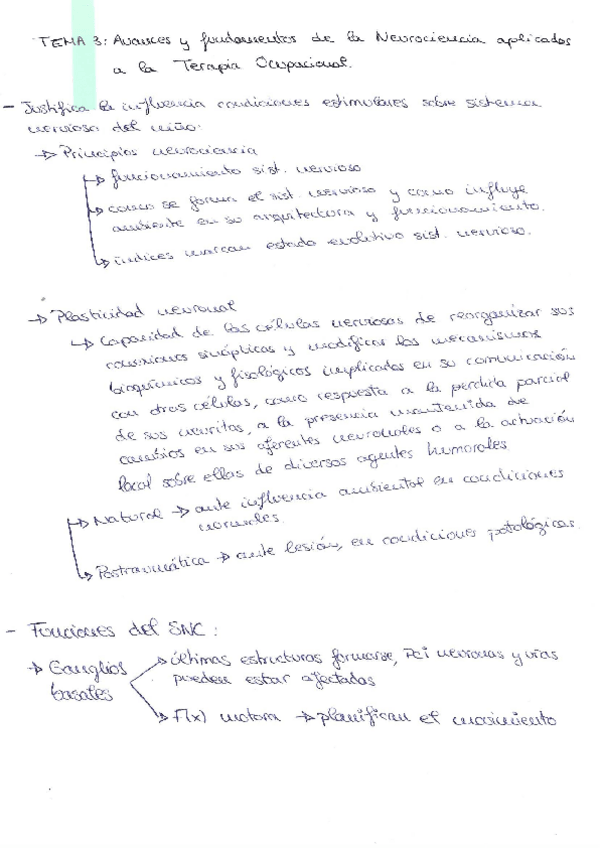 TEMA 3: Avances y fundamentos de la Neurociencia aplicados
a la Terapia Ocupacional.
- Justifica la influencia condiciones estimulares sobre sistema
nervioso del niño:
→ Principios neurociencia
→ funcionamiento sist. nervioso
→ como se forman el sist. nervioso y como influye
ambiente en su arquitectura y funcionamiento.
→ índices marcan estado evolutivo sist. nervioso.
→ Plasticidad neuronal
→ Capacidad de las células nerviosas de reorganizar sus
conexiones sinápticas y modificar los mecanismos
bioquímicos y fisológicos implicados en su comunicación
con otras células, como respuesta a la perdida parcial
de sus neuritas, a la presencia mantenida de
cambios en sus aferentes neuronales o a la actuación
local sobre ellas de diversos agentes humorales
→ Natural → ante influencia ambiental en condiciones
normales.
→ Postraumática → ante lesión, en condiciones patológicas.
- Funciones del SNC:
→ Ganglios basales
→ últimas estructuras formarse, PCi neuronas y vías
pueden estar afectadas
→ F(x) motora → planifican el movimiento